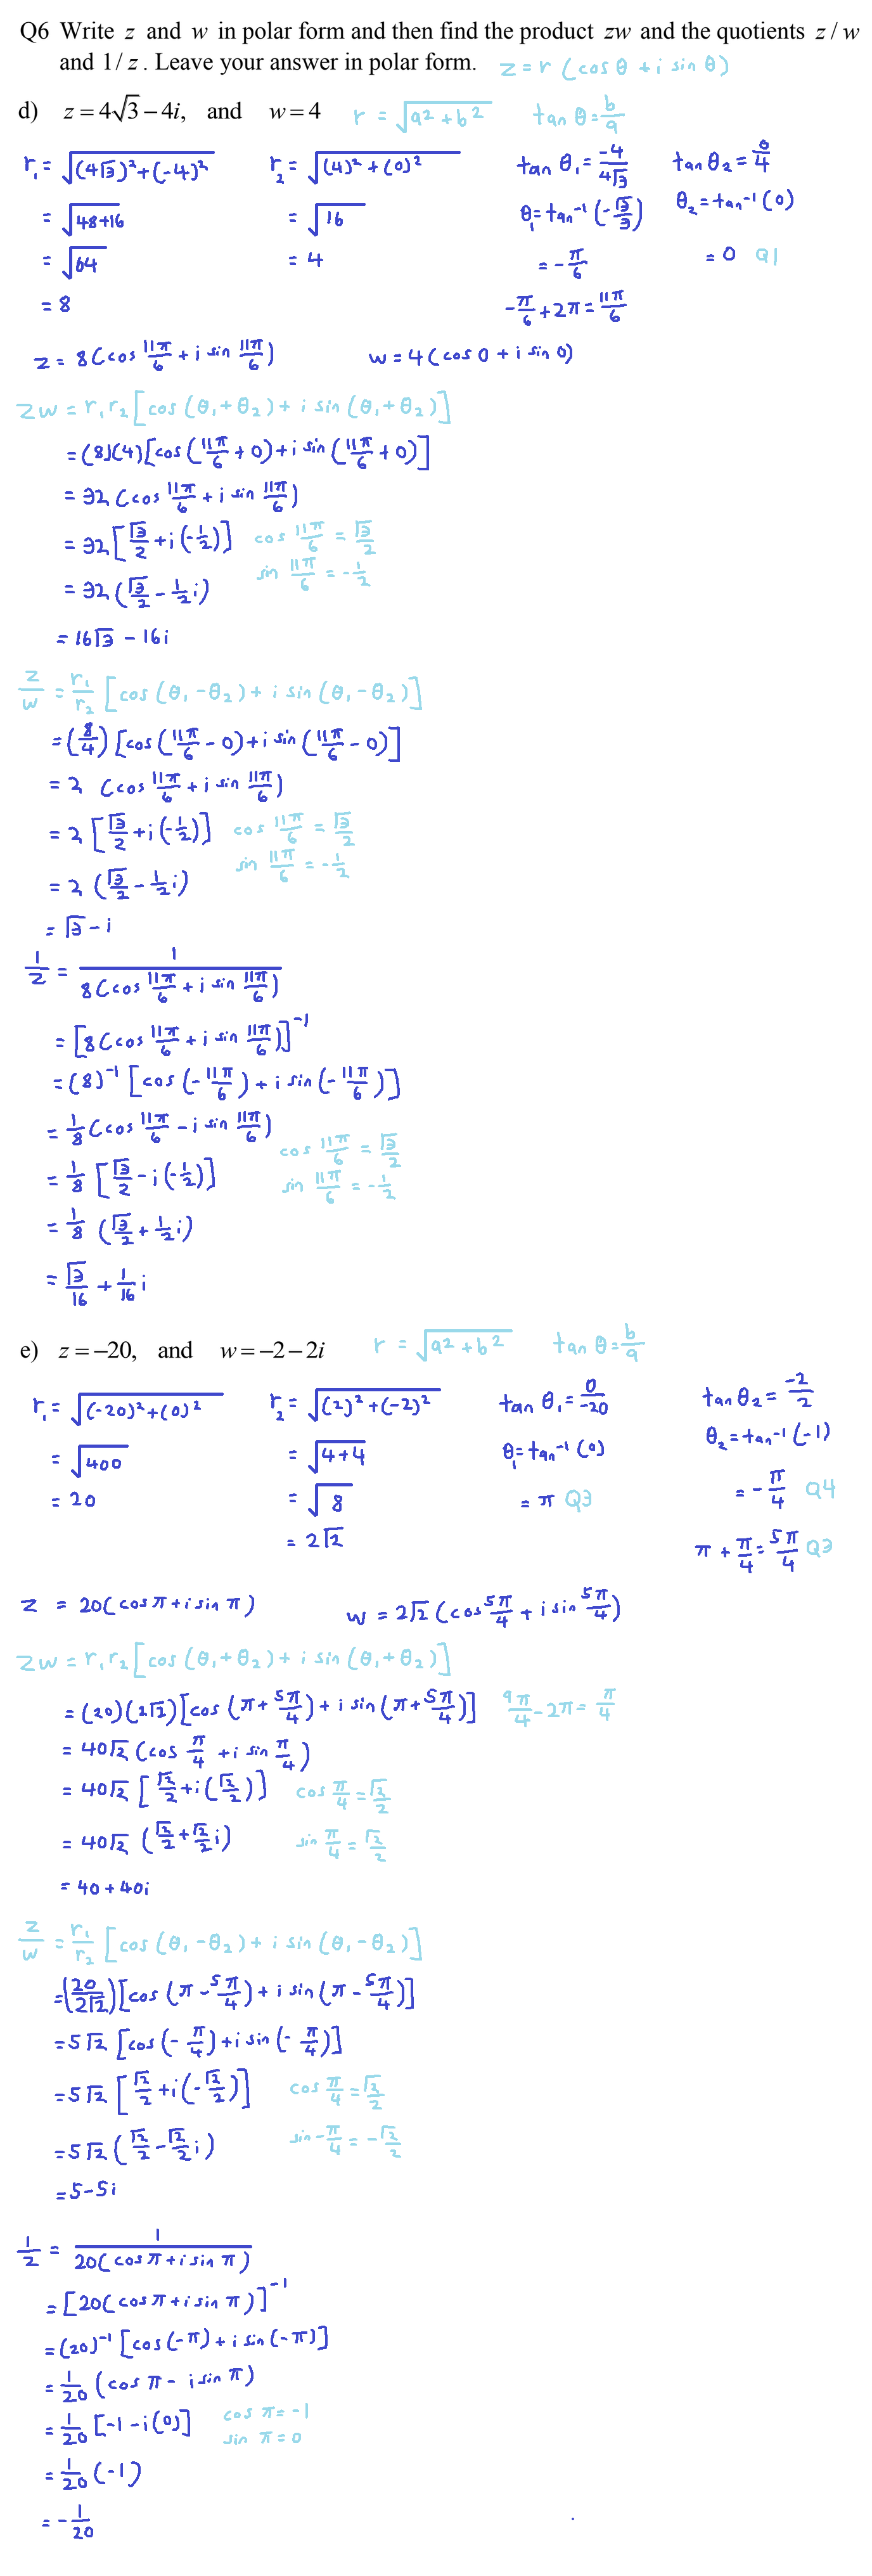 Q6 Write z and w in polar form and then find the product zw and the quotients z / w
and 1 / z . Leave your answer in polar form. z = r (cos θ + i sin θ)
d) z = 4√3 − 4i, and w = 4 r = √(a² + b²) tan θ = b/a
r₁ = √((4√3)² + (-4)²) r₂ = √((4)² + (0)²) tan θ₁ = -4/4√3 tan θ₂ = 0/4
= √(48+16) = √16 θ₁ = tan⁻¹ (-√3/3) θ₂ = tan⁻¹ (0)
= √64 = 4 = -π/6 = 0 Q1
= 8 -π/6 + 2π = 11π/6
z = 8(cos 11π/6 + i sin 11π/6) w = 4 (cos 0 + i sin 0)
zw = r₁ r₂ [cos (θ₁ + θ₂) + i sin (θ₁ + θ₂)]
= (8)(4) [cos (11π/6 + 0) + i sin (11π/6 + 0)]
= 32 (cos 11π/6 + i sin 11π/6)
= 32 [√3/2 + i (-1/2)] cos 11π/6 = √3/2
= 32 (√3/2 - 1/2 i) sin 11π/6 = -1/2
= 16√3 - 16i
z/w = r₁/r₂ [cos (θ₁ - θ₂) + i sin (θ₁ - θ₂)]
= (8/4) [cos (11π/6 - 0) + i sin (11π/6 - 0)]
= 2 (cos 11π/6 + i sin 11π/6)
= 2 [√3/2 + i (-1/2)] cos 11π/6 = √3/2
= 2 (√3/2 - 1/2 i) sin 11π/6 = -1/2
= √3 - i
1/z = 1/8(cos 11π/6 + i sin 11π/6)
= [8(cos 11π/6 + i sin 11π/6)]⁻¹
= (8)⁻¹ [cos (-11π/6) + i sin (-11π/6)]
= 1/8 (cos 11π/6 - i sin 11π/6) cos 11π/6 = √3/2
= 1/8 [√3/2 - i (-1/2)] sin 11π/6 = -1/2
= 1/8 (√3/2 + 1/2 i)
= √3/16 + 1/16 i
e) z = −20, and w = −2 − 2i r = √(a² + b²) tan θ = b/a
r₁ = √((-20)² + (0)²) r₂ = √((2)² + (-2)²) tan θ₁ = 0/-20 tan θ₂ = -2/2
= √400 = √(4+4) θ₁ = tan⁻¹ (0) θ₂ = tan⁻¹ (-1)
= 20 = √8 = π Q3 = -π/4 Q4
= 2√2 π + π/4 = 5π/4 Q3
z = 20(cos π + i sin π) w = 2√2 (cos 5π/4 + i sin 5π/4)
zw = r₁ r₂ [cos (θ₁ + θ₂) + i sin (θ₁ + θ₂)]
= (20)(2√2) [cos (π + 5π/4) + i sin (π + 5π/4)] 9π/4 - 2π = π/4
= 40√2 (cos π/4 + i sin π/4)
= 40√2 [√2/2 + i (√2/2)] cos π/4 = √2/2
= 40√2 (√2/2 + √2/2 i) sin π/4 = √2/2
= 40 + 40i
z/w = r₁/r₂ [cos (θ₁ - θ₂) + i sin (θ₁ - θ₂)]
= (20/2√2) [cos (π - 5π/4) + i sin (π - 5π/4)]
= 5√2 [cos (-π/4) + i sin (-π/4)]
= 5√2 [√2/2 + i (-√2/2)] cos π/4 = √2/2
= 5√2 (√2/2 - √2/2 i) sin -π/4 = -√2/2
= 5 - 5i
1/z = 1/20(cos π + i sin π)
= [20(cos π + i sin π)]⁻¹
= (20)⁻¹ [cos (-π) + i sin (-π)]
= 1/20 (cos π - i sin π)
= 1/20 [-1 - i(0)] cos π = -1
sin π = 0
= 1/20 (-1)
= -1/20